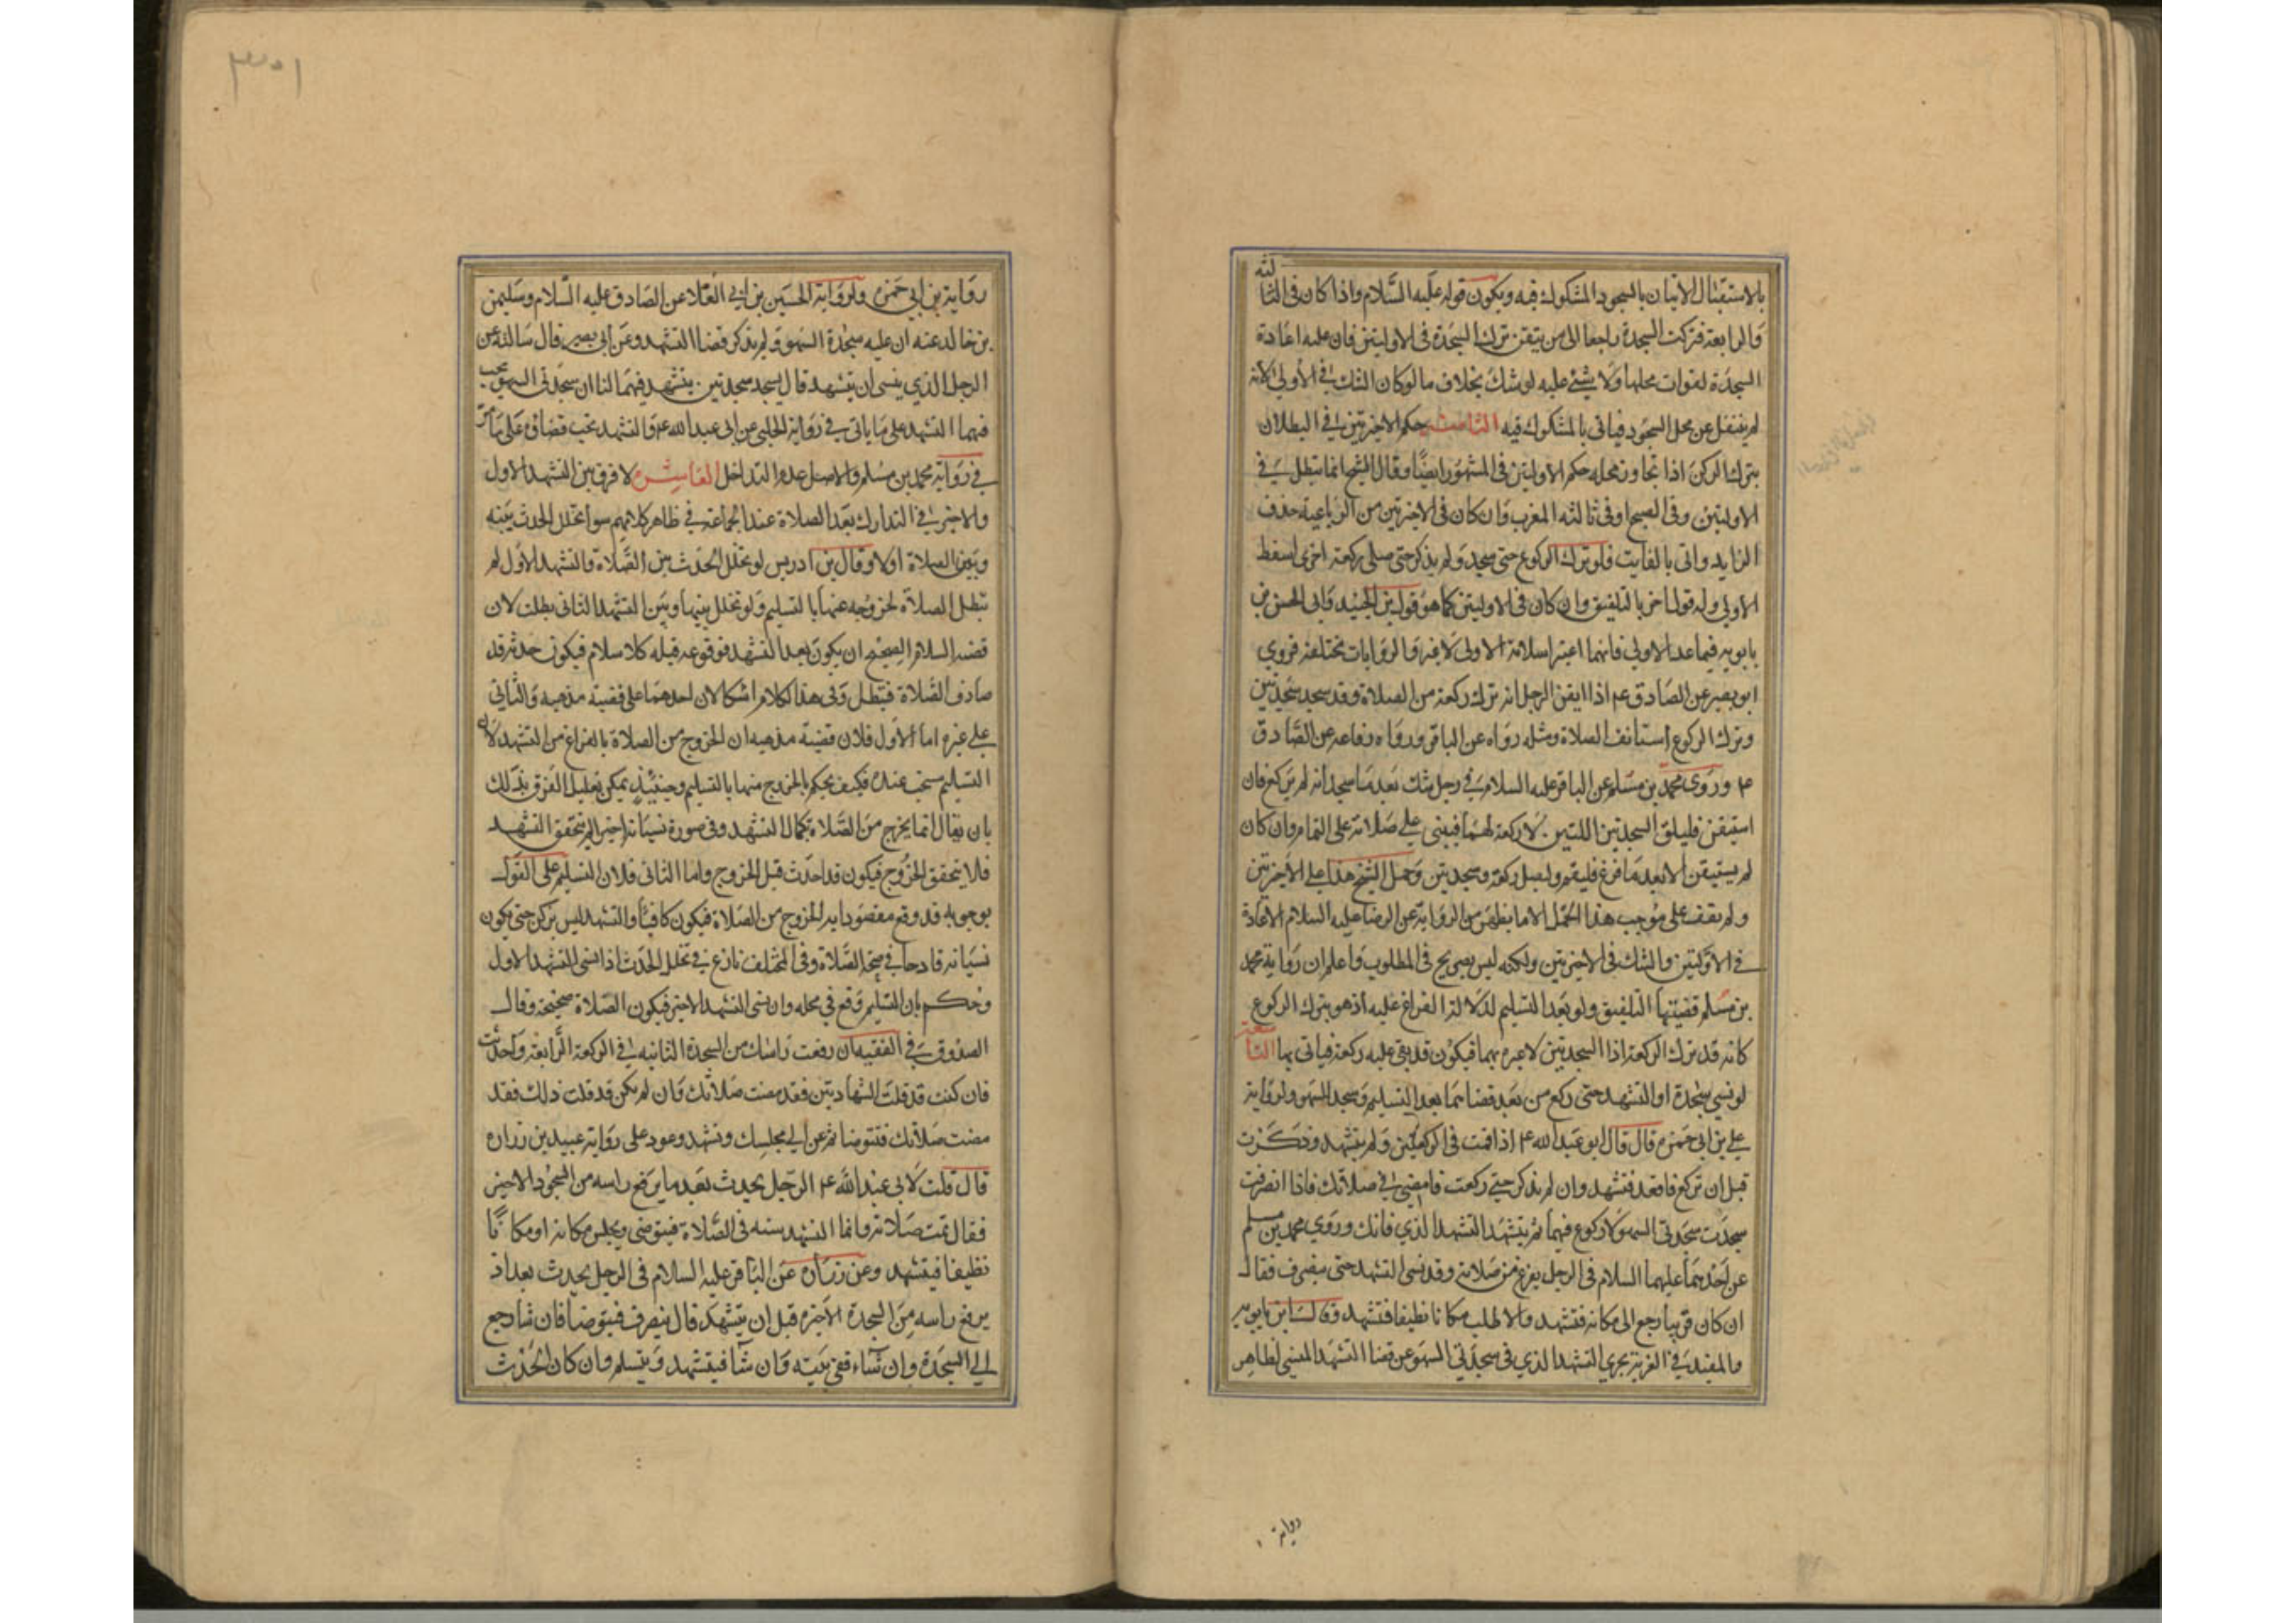 بالاستقبال الاتيان بالسجود المشكوك فيه ويكون قوله عليه السلام واذا كان في الثالثة
والرابعة فتركت السجدة راجعا الى من يتقن ترك السجدة في الاوليتين فان عليه اعادة
السجدة لفوات محلها ولا شئ عليه لو شك بخلاف ما لو كان الشك في الأولى لانه
لم ينتقل عن محل السجود فياتي بالمشكوك فيه الثامنة حكم الاخيرتين في البطلان
بترك الركن اذا تجاوز محله حكم الاوليتين في المشهور ايضا وقال الشيخ انما تبطل في
الاوليتين وفي الصبح او في ثالثة المغرب وان كان في الاخيرتين من الرباعية حذف
الزايد واتى بالفايت فلو ترك الركوع حتى سجد ولم يذكر حتى صلى ركعة اخرى اسقط
الاولى وله قول اخر بالتلفيق وان كان في الاوليتين كما هو قول بن الجنيد وابى الحسن بن
بابويه فيما عدا الاولى فانهما اعتبرا سلامة الاولى لا غير والروايات مختلفة فروي
ابو بصير عن الصادق عم اذا ايقن الرجل انه ترك ركعة من الصلاة وقد سجد سجدتين
وترك الركوع استانف الصلاة ومثله رواه عن الباقر ورواه رفاعه عن الصادق
عم وروى محمد بن مسلم عن الباقر عليه السلام في رجل شك بعد ما سجد انه لم يركع فان
استيقن فليلق السجدتين اللتين لا ركعة لهما فيبنى على صلاته على التمام وان كان
لم يستيقن الا بعد ما فرغ فليقم وليصل ركعة وسجدتين وحمل الشيخ هذا على الاخيرتين
ولم يقف على موجب هذا الحمل الا ما يظهر من الرواية عن الرضا عليه السلام الاعادة
في الاوليتين والشك في الاخيرتين ولكنه ليس بصريح في المطلوب واعلم ان رواية محمد
بن مسلم قضيتها التلفيق ولو بعد التسليم لدلالة الفراغ عليه اذ هو بترك الركوع
كانه قد ترك الركعة اذا السجدتين لا عبرة بهما فيكون قد بقي عليه ركعة فياتي بها التاسعة
لو نسي سجدة او التشهد حتى ركع من بعد قضاهما بعد التسليم وسجد للسهو ولرواية
علي بن ابي حمزه قال قال ابو عبد الله عم اذا قمت في الركعتين ولم يتشهد وذكرت
قبل ان تركع فاقعد فتشهد وان لم يذكر حتى ركعت فامض في صلاتك فاذا انصرفت
سجدت سجدتي السهو لا ركوع فيهما ثم يتشهد التشهد الذي فاتك وروي محمد بن مسلم
عن احدهما عليهما السلام في الرجل يفرغ من صلاته وقد نسى التشهد حتى ينصرف فقال
ان كان قريبا رجع الى مكانه فتشهد والا طلب مكانا نظيفا فتشهد وقال ابن بابويه
والمفيد في الغرية يجري التشهد الذي في سجدتي السهو عن قضا التشهد المنسي لظاهر
رواية
٣٠١
رواية بن ابي حمزه ولرواية الحسين بن ابي العلا عن الصادق عليه السلام وسليمن
بن خالد عنه ان عليه سجدة السهو ولم يذكر قضا التشهد وعن ابي بصير قال سالته عن
الرجل الذي ينسى ان يتشهد قال يسجد سجدتين يتشهد فيهما لنا ان سجدتي السهو يجب
فيهما التشهد على ما ياتى في رواية الحلبي عن ابي عبد الله عم والتشهد يجب قضاؤه على ما مر
في رواية محمد بن مسلم والاصل عدم التداخل العاشره لا فرق بين التشهد الاول
والاخير في التدارك بعد الصلاة عند الجماعة في ظاهر كلامهم سوا تخلل الحدث بينه
وبين الصلاة او لا وقال بن ادريس لو تخلل الحدث بين الصلاة والتشهد الاول لم
تبطل الصلاة لخروجه عنها بالتسليم ولو تخلل بينها وبين التشهد الثاني بطلت لان
قضية السلام الصحيح ان يكون بعد التشهد فوقوعه قبله كلا سلام فيكون حدثه قد
صادف الصلاة فتبطل وفي هذا الكلام اشكالان احدهما على قضية مذهبه والثاني
على غيره اما الاول فلان قضية مذهبه ان الخروج من الصلاة بالفراغ من التشهد لان
التسليم سحب عنده فكيف يحكم بالخروج منها بالتسليم وحينئذ يمكن تعليل الفرق بذلك
بان يقال انما يخرج من الصلاة بكمال التشهد وفي صورة نسيانه اخيرا لم يتحقق التشهد
فلا يتحقق الخروج فيكون قد احدث قبل الخروج واما الثاني فلان التسليم على القول
بوجوبه قد وقع مقصودا به الخروج من الصلاة فيكون كافيا والتشهد ليس بركن حتى يكون
نسيانه قادحا في صحة الصلاة وفي المختلف نازع في تخلل الحدث اذا نسي التشهد الاول
وحكم بان التسليم وقع في محله وان نسي التشهد الاخير فيكون الصلاة صحيحة وقال
الصدوق في الفقيه ان رفعت راسك من السجدة الثانيه في الركعة الرابعة واحدثت
فان كنت قد قلت الشهادتين فقد مضت صلاتك وان لم يكن قد قلت ذلك فقد
مضت صلاتك فتوضا ثم عد الى مجلسك وتشهد وعود على رواية عبيد بن زراره
قال قلت لابي عبد الله عم الرجل يحدث بعد ما يرفع راسه من السجود الاخير
فقال تمت صلاته وانما التشهد سنه في الصلاة فيتوضى ويجلس مكانه او مكانًا
نظيفا فيتشهد وعن زراره عن الباقر عليه السلام في الرجل يحدث بعد اذ
يرفع راسه من السجدة الاخيره قبل ان يتشهد قال ينصرف فيتوضا فان شا رجع
الى السجدة وان شاء ففي بيته وان شا فيتشهد ويسلم وان كان الحدث